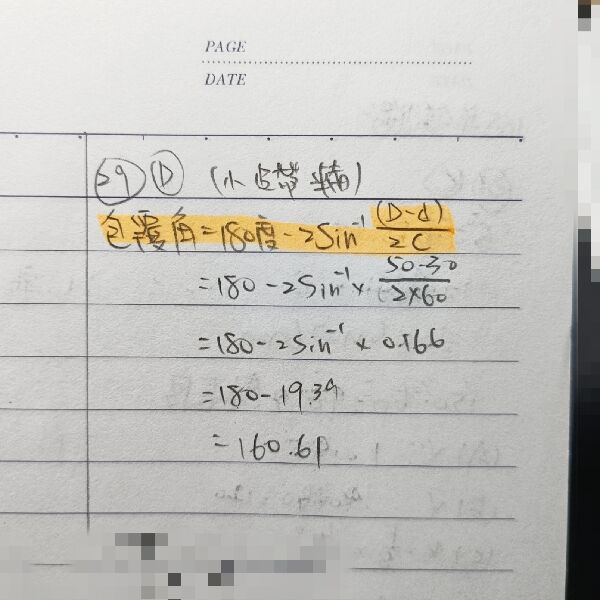 PAGE
DATE
29 D (小皮帶輪)
包覆角=180度-2Sin⁻¹ (D-d)/2C
=180-2Sin⁻¹× 50-30/2×60
=180-2Sin⁻¹× 0.166
=180-19.39
=160.61